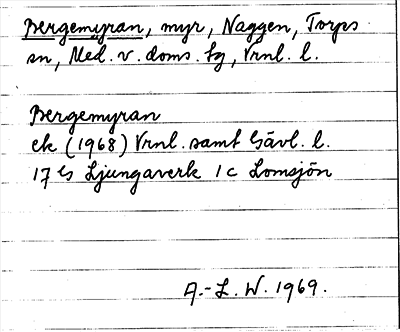 Bergemyran, myr, Naggen, Torps
sn, Med. v. doms. sg, Vrnl. l.
Bergemyran
ek (1968) Vrnl. samt Gävl. l.
17 G Ljungaverk 1 c Lomsjön
A.-L. W. 1969.